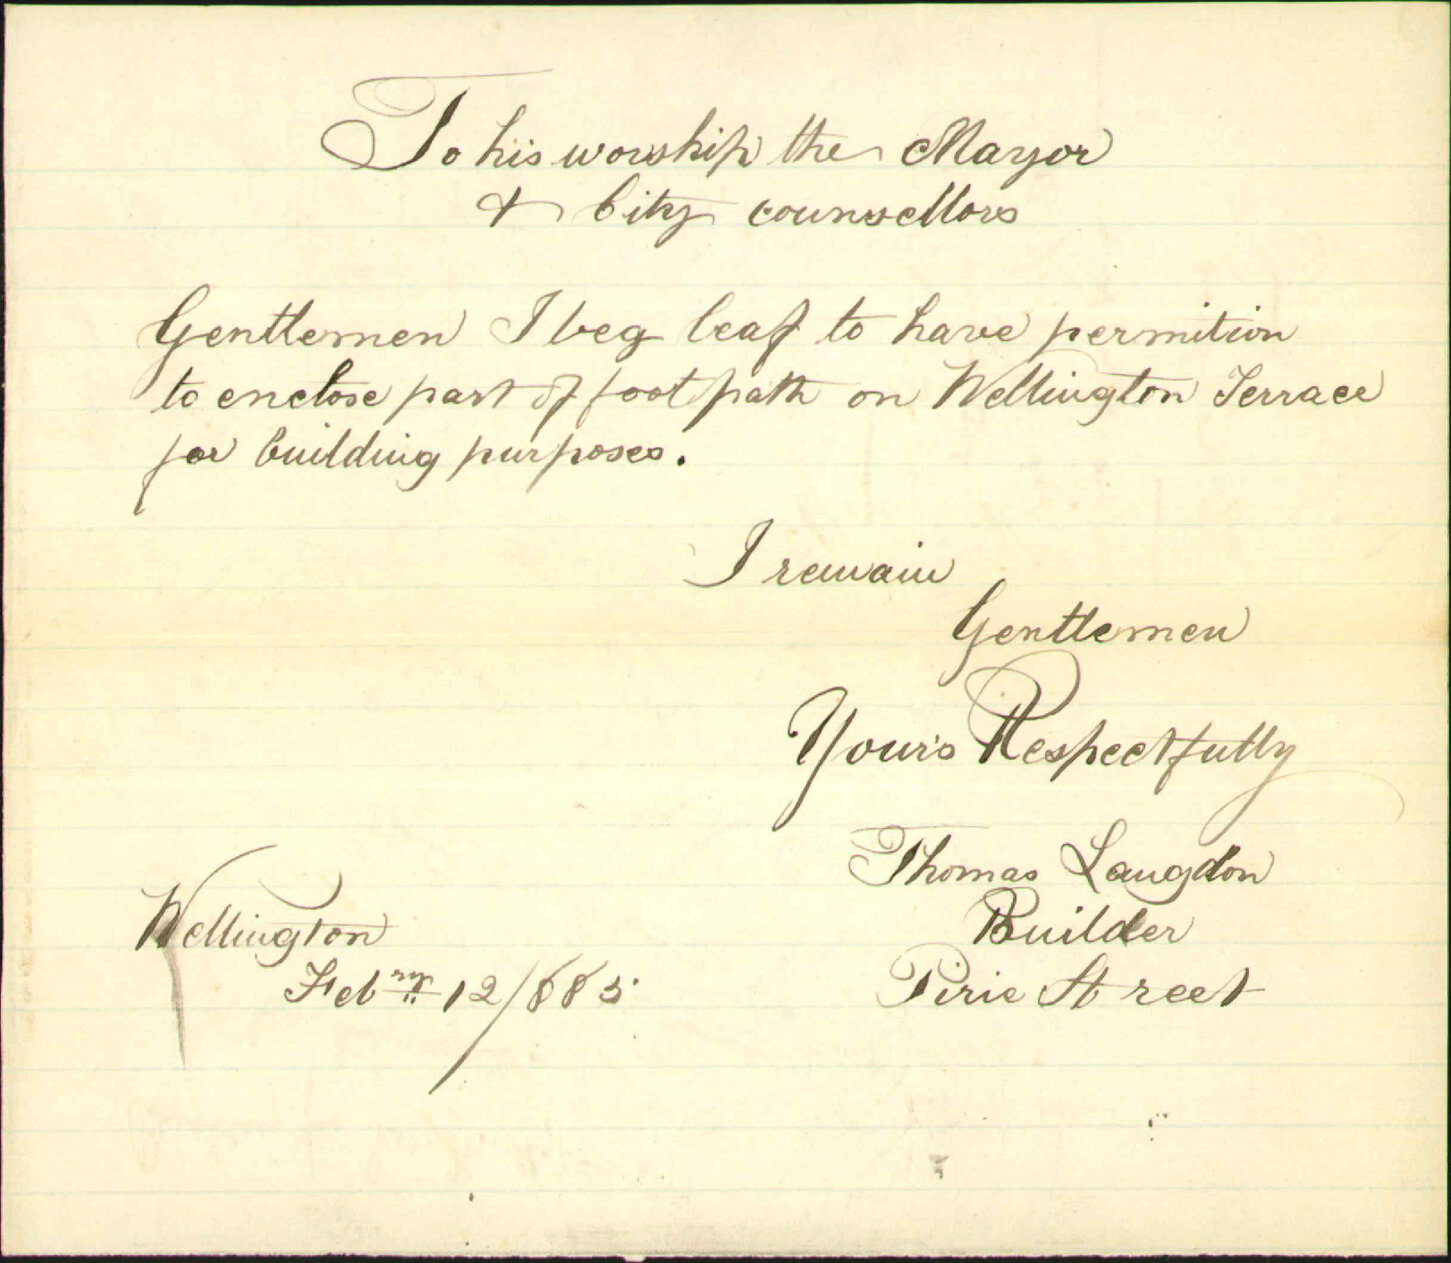 To his worship the Mayor
& City counsellors
Gentlemen I beg leaf to have permition
to enclose part of footpath on Wellington Terrace
for building purposes.
I remain
Gentlemen
Yours Respectfully
Thomas Langdon
Builder
Pirie Street
Wellington
Febry 12/885